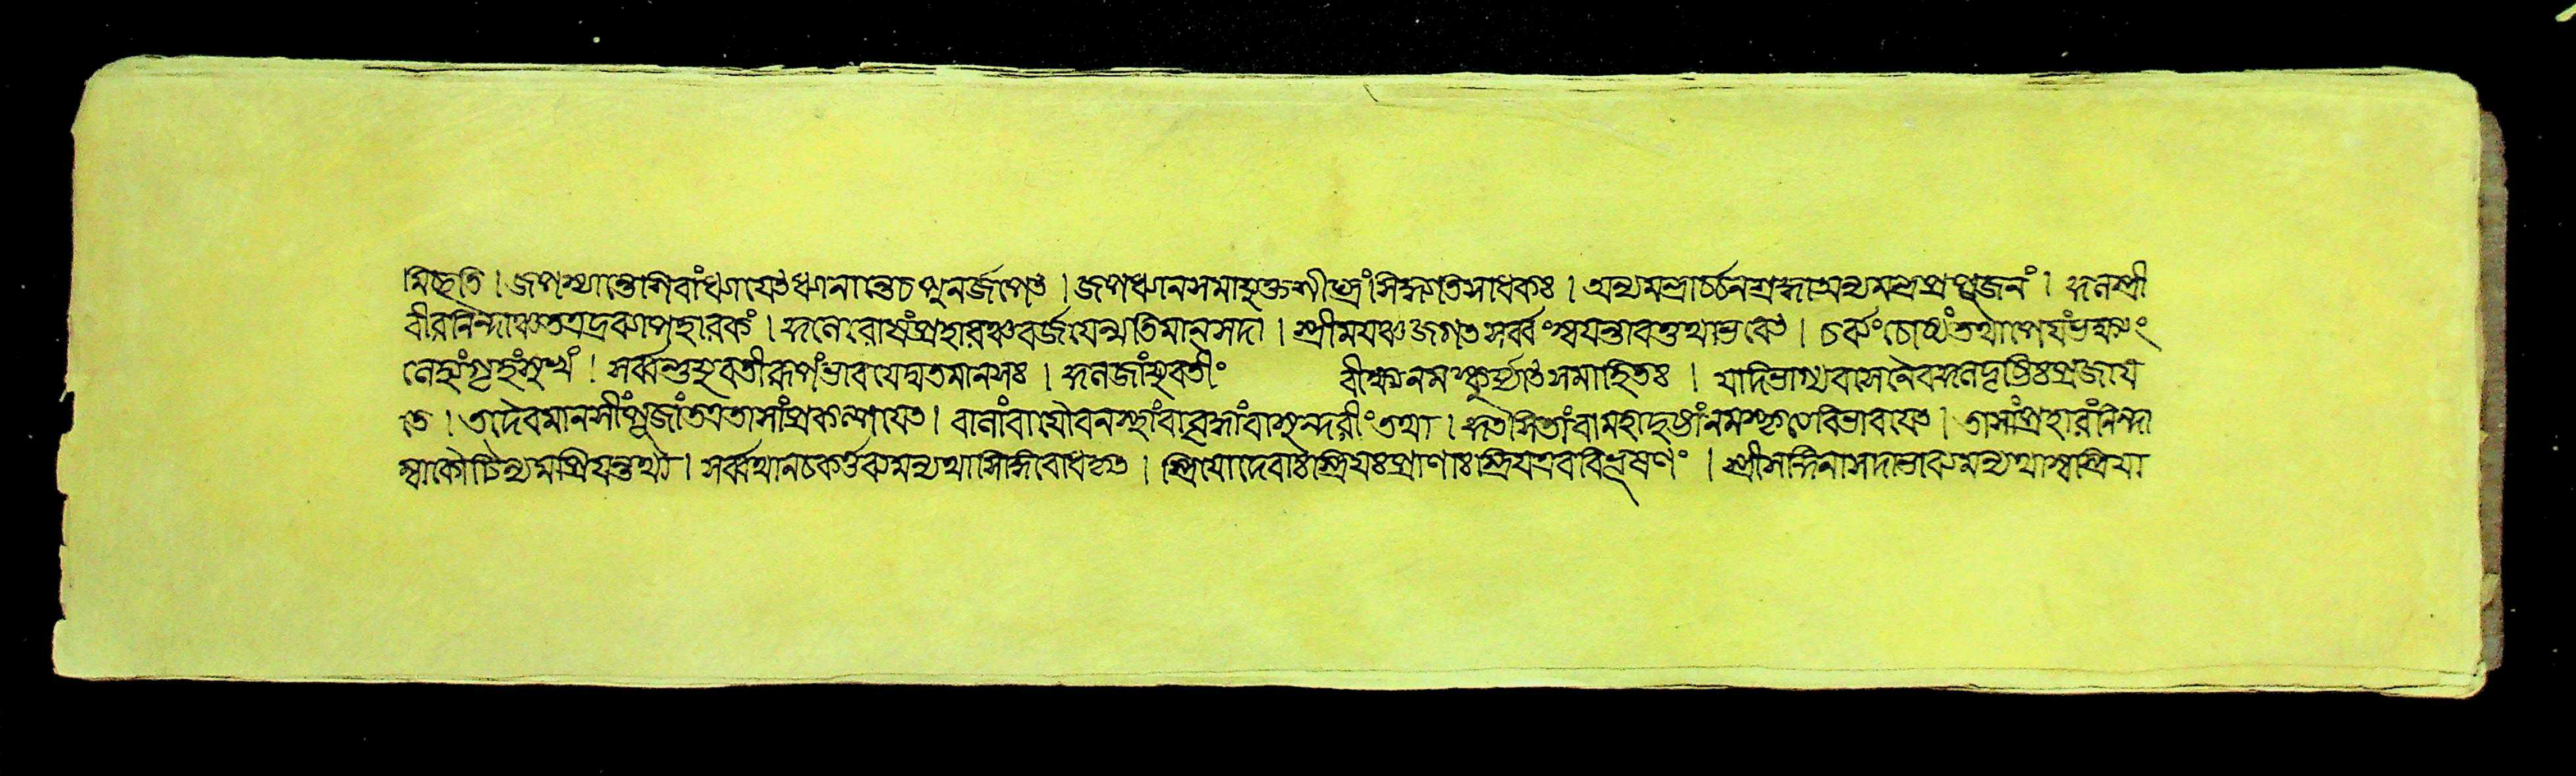 মিচ্ছতি । জপশ্যান্তোশিবাংধ্যায়েৎধ্যানান্তেচপুনর্জপেৎ । জপধ্যানসমাযুক্তশীঘ্রংসিদ্ধ্যতিসাধকঃ । অন্যমন্ত্রার্চ্চনশ্রদ্ধাঅন্যমন্ত্রপ্রপূজনং । কুলস্ত্রী
বীরনিন্দাঞ্চতদ্দ্রব্যাপহারকং । কুলেরোষংপ্রহারঞ্চবর্জয়েন্মতিমানসদা । স্ত্রীময়ঞ্চজগতসর্ব্বংস্বয়ন্তাবত্তথাভবেৎ । চর্ব্যংচোষ্যংতথাপেয়ংভক্ষ্যং
লেহ্যংগৃহংসুখং । সর্ব্বন্তুযুবতীরূপংভাবয়েদ্যতমানসঃ । কুলজাংযুবতীং বীক্ষ্যনমস্কুর্য্যাৎসমাহিতঃ । যদিভাগ্যবাসনৈবকুলদৃষ্টিঃপ্রজায়
তে । তদৈবমানসীংপূজাংতত্রতাসাংপ্রকল্পয়েত । বালাংবাযৌবনস্থাংবাবৃদ্ধাংবাসুন্দরীংতথা । কুৎসিতাংবামহাদুষ্টাংনমস্কৃত্যবিভাবয়েৎ । তাসাংপ্রহারংনিন্দা
ম্বাকৌটিল্যমপ্রিয়ন্তুথা । সর্ব্বথানচকর্ত্তব্যমন্যথাসিদ্ধিরোধকৃত । স্ত্রিয়োদেবাঃস্ত্রিয়ঃপ্রাণাঃস্ত্রিয়এববিভূষণং । স্ত্রীসঙ্গিনাসদাভাব্যমন্যথাস্বস্ত্রিয়া